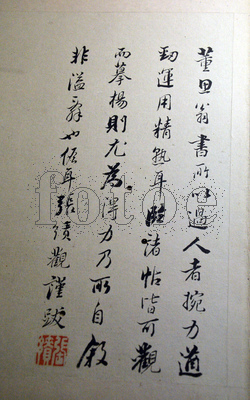 董思翁書所以過人者捥力遒
勁運用精熟耳臨諸帖皆可觀
而摹楊則尤為得力乃所自叙
非溢辭也耳張績觀謹跋
張績
fotoe